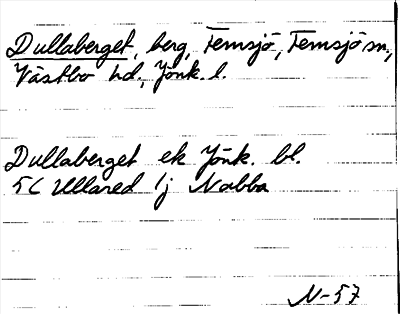 Dullaberget, berg, Femsjö, Femsjö sn,
Västbo hd., Jönk. l.
Dullaberget ek Jönk. bl.
5C Ullared 1j Nabba
N-57